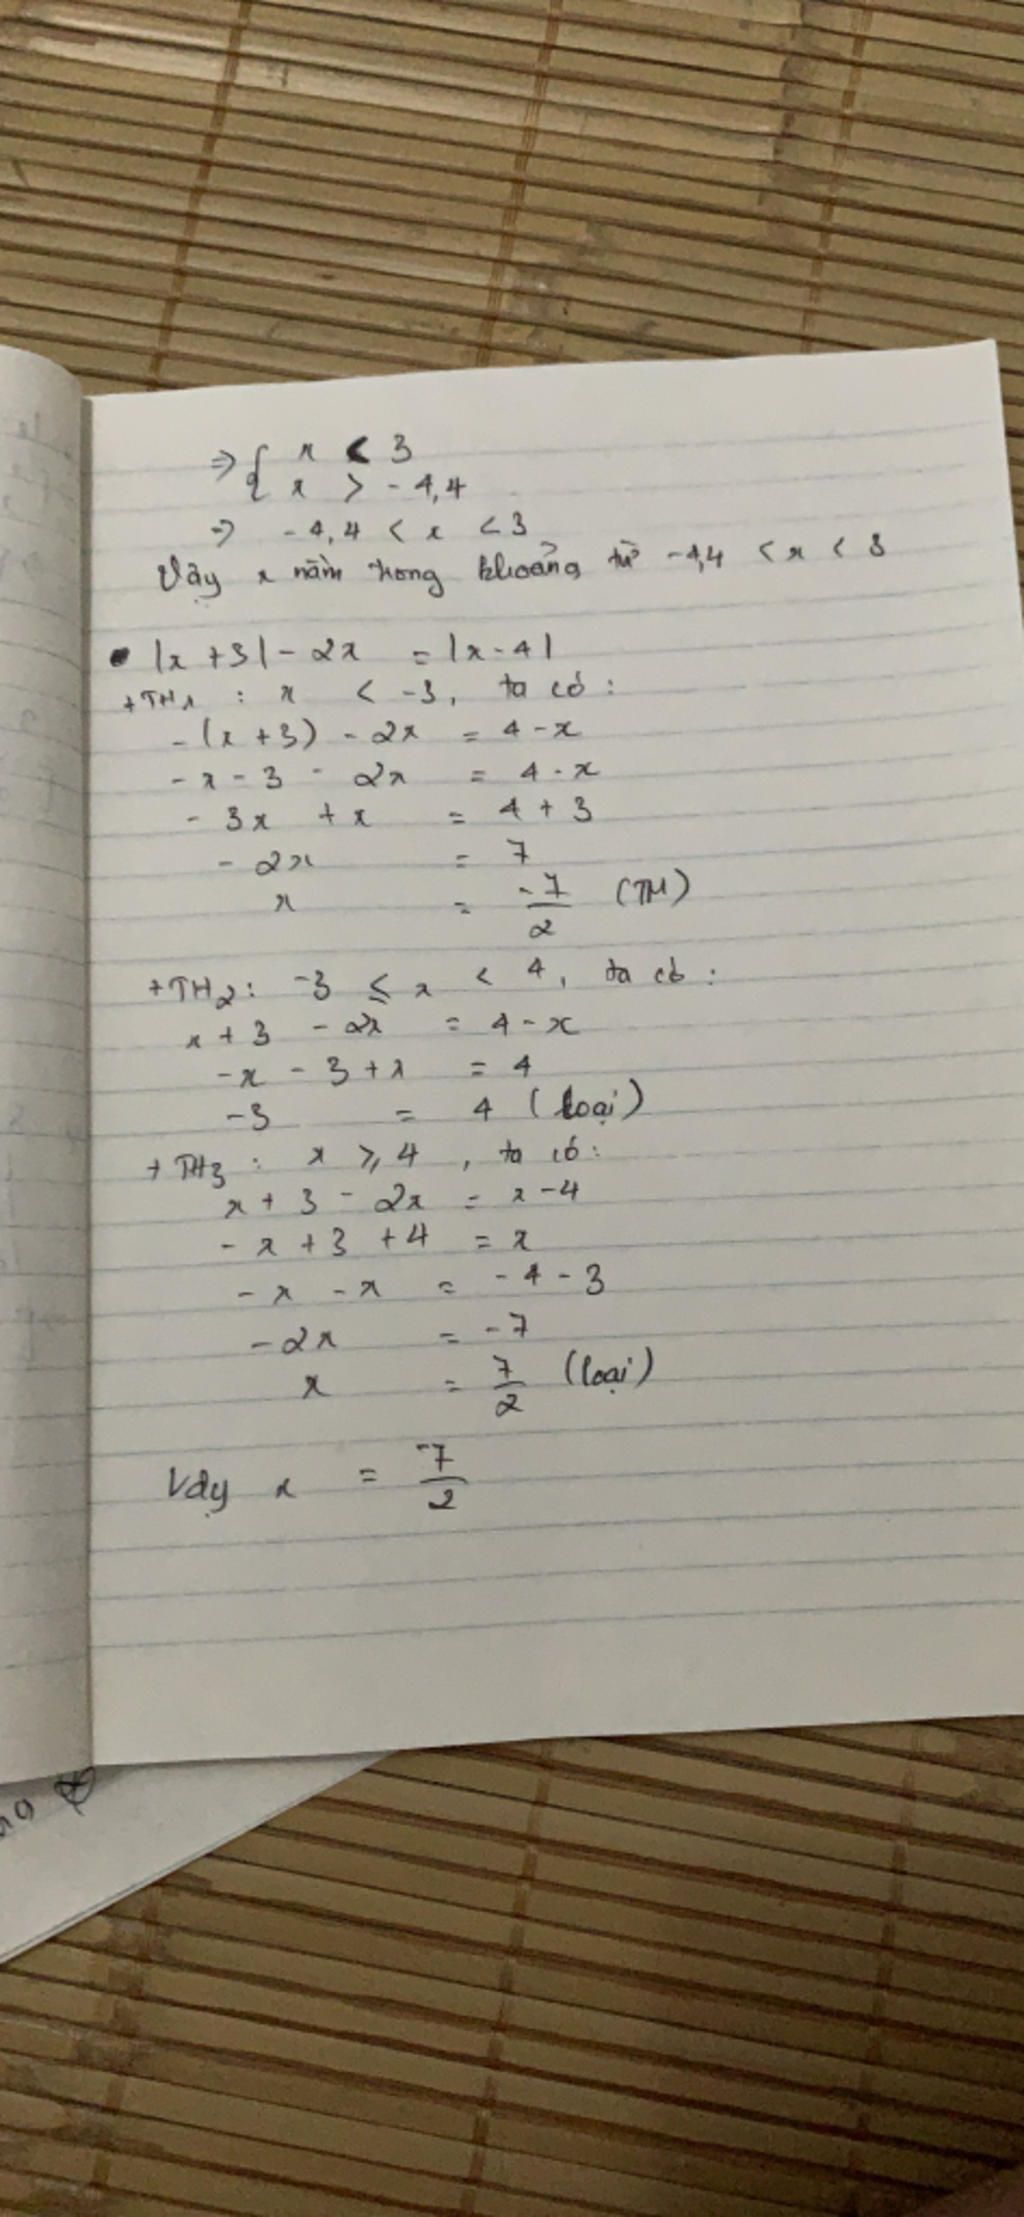 ⇒ { x < 3
x > -4,4
⇒ -4,4 < x < 3
Vậy x nằm trong khoảng từ -4,4 < x < 3
• |x + 3| - 2x = |x - 4|
+ TH1 : x < -3, ta có :
-(x + 3) - 2x = 4 - x
-x - 3 - 2x = 4 - x
- 3x + x = 4 + 3
- 2x = 7
x = -7/2 (TM)
+ TH2 : -3 ≤ x < 4, ta có :
x + 3 - 2x = 4 - x
-x - 3 + x = 4
-3 = 4 (loại)
+ TH3 : x ≥ 4, ta có :
x + 3 - 2x = x - 4
- x + 3 + 4 = x
- x - x = -4 - 3
- 2x = -7
x = 7/2 (loại)
Vậy x = -7/2